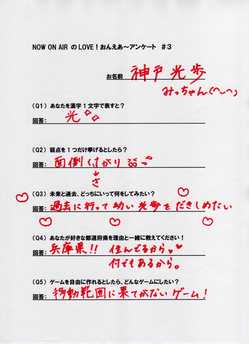 NOW ON AIR のLOVE!おんえあ〜アンケート #3
お名前 神戸光歩
みっちゃん(^-^)
(Q1) あなたを漢字1文字で表すと?
回答: 光
(Q2) 弱点を1つだけ挙げるとしたら?
回答: 面倒くさがり
(Q3) 未来と過去、どっちにいって何をしてみたい?
回答: 過去に行って幼い光歩をだきしめたい
(Q4) あなたが好きな都道府県を理由と一緒に教えてください!
回答: 兵庫県!! 住んでるから。
何でもあるから。
(Q5) ゲームを自由に作れるとしたら、どんなゲームにしたい?
回答: 行動範囲に果てがないゲーム!